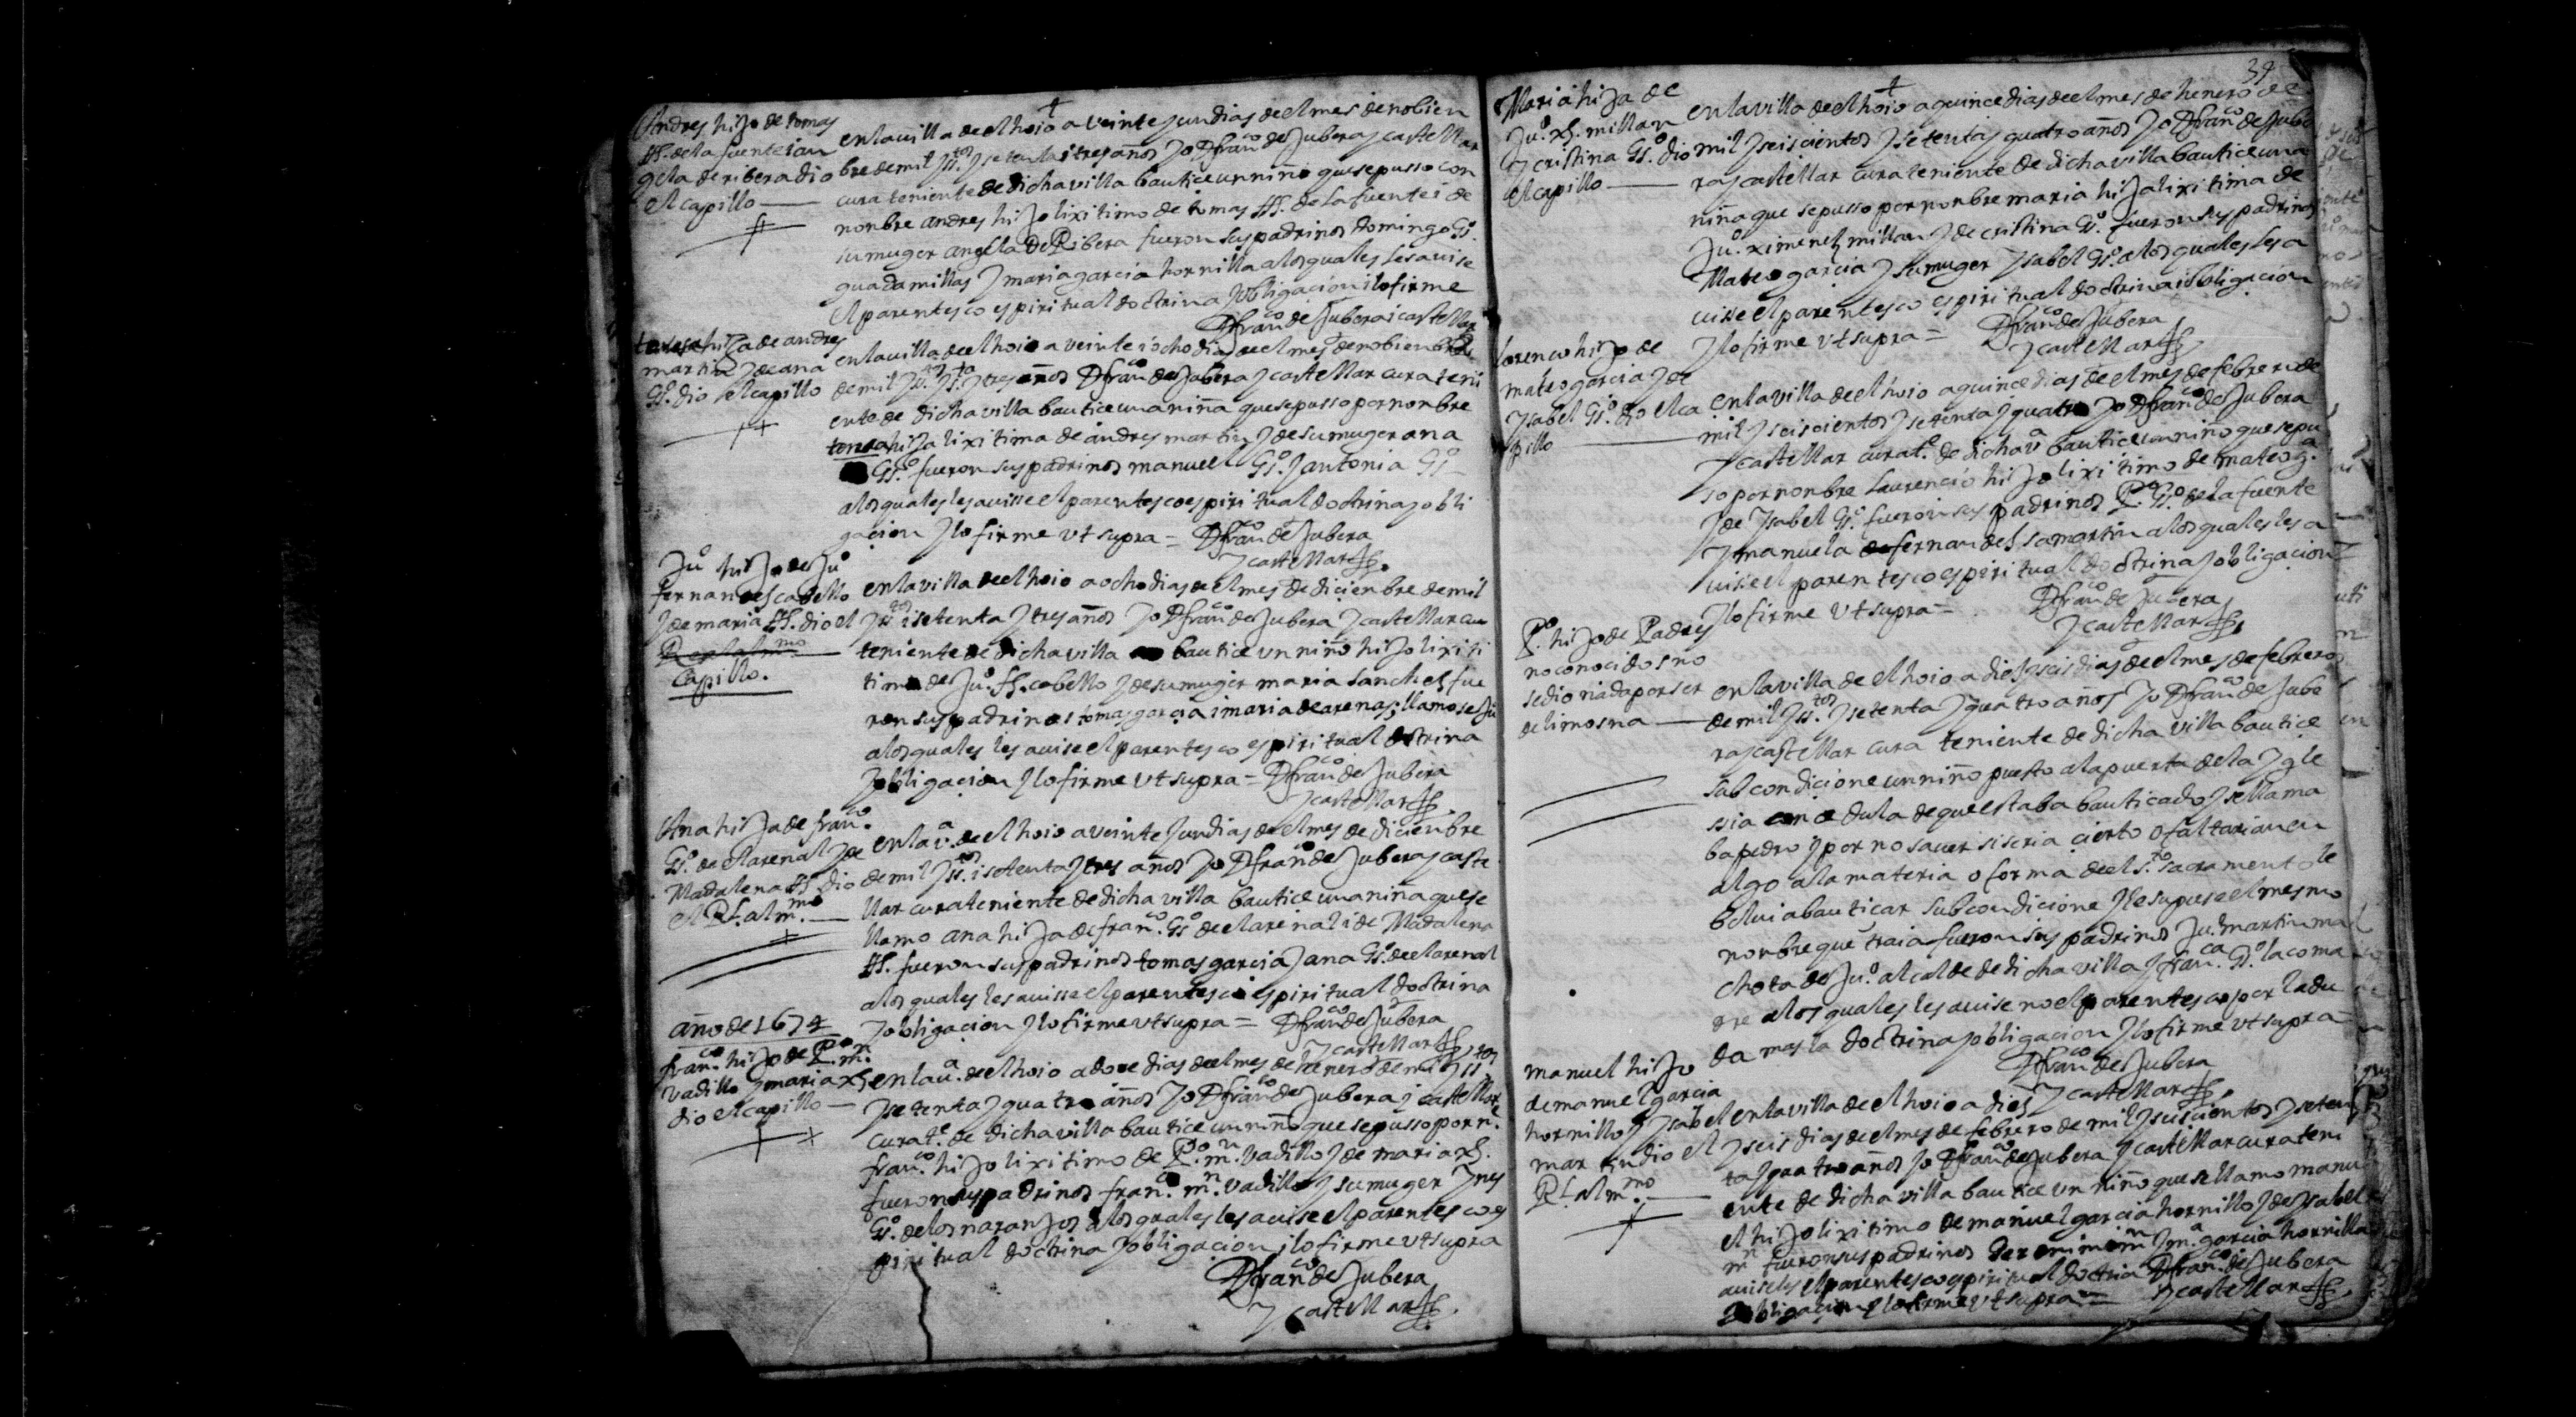 Andres hijo de tomas
Hs. de la fuente i an
gela de ribera dio
el capillo
en la villa de el hoio a veinte y un dias de el mes de nobien
bre de mil y ss.tos y setenta i tres años Jo D fran.co de Jubera y castellar
cura teniente de dicha villa bautice un niño que se pusso con
nonbre andres hijo lixitimo de tomas Hs. de la fuente i de
su muger angela de Ribera fueron sus padrinos domingo Gs.o
guadamillas y maria garcia hornilla a los quales les avise
el parentesco espiritual doctrina y obligacion i lo firme
D fran.co de Jubera i castellar
teresa hija de andres
martin y de ana
Gs.o dio el capillo
en la villa de el hoio a veinte i ocho dias de el mes de nobienbre
de mil y ss.tos y s.ta y tres años D fran.co de Jubera y castellar cura teni
ente de dicha villa bautice una niña que se pusso por nonbre
teresa hija lixitima de andres martin y de su muger ana
Gs.o fueron sus padrinos manuel Gs.o y antonia Gs.o
a los quales les avisse el parentesco espiritual doctrina y obli
gacion y lo firme vt supra = D fran.co de Jubera
y castellar
Ju.o hijo de Ju.o
fernandes cabello
y de maria Hs. dio el
capillo.
en la villa de el hoio a ocho dias de el mes de dicienbre de mil
y ss.tos i setenta y tres años Jo D fran.co de Jubera y castellar cu
teniente de dicha villa bautice un niño hijo lixiti
timo de Ju.o fs. cabello y de su muger maria sanches fue
ron sus padrinos tomas garcia i maria de arenas; llamose Ju.o
a los quales les avise el parentesco espiritual dotrina
y obligacion y lo firme vt supra = D fran.co de Jubera
y castellar
Ana hija de fran.co
Gs.o de el arenal y de
Madalena Hs. dio
el R.l al m.mo
en la v.a de el hoio a veinte y un dias de el mes de dicienbre
de mil y ss.tos i setenta y tres años Jo D fran.co de Jubera y caste
llar cura teniente de dicha villa bautice una niña que se
llamo ana hija de fran.co Gs.o de el arenal i de Madalena
Hs. fueron sus padrinos tomas garcia y ana Gs.o de el arenal
a los quales les avisse el parentesco espiritual doctrina
y obligacion y lo firme vt supra = D fran.co de Jubera
y castellar
año de 1674
fran.co hijo de P.o m.n
vadillo y maria xs.
dio el capillo
en la v.a de el hoio a doce dias de el mes de henero de mil y ss.tos
y setenta y quatro años Jo D fran.co de Jubera y castellar
cura t.e de dicha villa bautice un niño que se pusso por n.e
fran.co hijo lixitimo de P.o m.n vadillo y de maria xs.
fueron sus padrinos fran.co m.n vadillo y su muger Ynes
Gs.o de los naranjos a los quales les avise el parentesco es
piritual doctrina y obligacion i lo firme vt supra
D fran.co de Jubera
y castellar
39
Maria hija de
Ju.o xs. millan
y cristina Gs.o dio
el capillo
en la villa de el hoio a quince dias de el mes de henero de
mil y seiscientos y setenta y quatro años Jo D fran.co de Jube
ra y castellar cura teniente de dicha villa bautice una
niña que se pusso por nonbre maria hija lixitima de
Ju.o ximenez millan y de cristina Gs.o fueron sus padrinos
Mateo garcia y su muger Ysabel Gs.o a los quales les a
visse el parentesco espiritual doctrina i obligacion
y lo firme vt supra = D fran.co de Jubera
y castellar
lorenco hijo de
mateo garcia y de
Ysabel Gs.o dio el ca
pillo
en la villa de el hoio a quince dias de el mes de febrero de
mil y seiscientos y setenta y quatro Jo D fran.co de Jubera
y castellar cura t.e de dicha v.a bautice un niño que se pu
so por nonbre laurencio hijo lixitimo de mateo g.a
y de Ysabel Gs.o fueron sus padrinos P.o Gs.o de la fuente
y manuela fernandes samartin a los quales les a
vise el parentesco espiritual doctrina y obligacion
y lo firme vt supra = D fran.co de Jubera
y castellar
P.o hijo de Padres
no conocidos no
se dio nada por ser
de limosna
en la villa de el hoio a dies y seis dias de el mes de febrero
de mil y ss.tos y setenta y quatro años Jo D fran.co de Jube
ra y castellar cura teniente de dicha villa bautice
sub condicione un niño puesto a la puerta de la Ygle
ssia con cedula de que estaba bauticado y se llama
ba pedro y por no saver si seria cierto o faltarian en
algo a la materia o forma de el s.to sacramento le
bolvi a bauticar sub condicione y le supuse el mesmo
nonbre que traia fueron sus padrinos Ju.o martin ma
chota de Ju.o alcalde de dicha villa y fran.ca Gs.o la coma
dre a los quales les avise no el parentesco por la du
da mas la doctrina y obligacion y lo firme vt supra =
D fran.co de Jubera
y castellar
manuel hijo
de manuel garcia
hornillo y Ysabel
martin dio el
R.l al m.mo
en la villa de el hoio a dies
y seis dias de el mes de febrero de mil y seiscientos y seten
ta y quatro años Jo D fran.co de Jubera y castellar cura teni
ente de dicha villa bautice un niño que se llamo manu
el hijo lixitimo de manuel garcia hornillo y de Ysabel
m.n fueron sus padrinos Jeronimo m.n y m.a garcia hornilla
aviseles el parentesco espiritual doctria D fran.co de Jubera
y obligacion y lo firme vt supra = y castellar